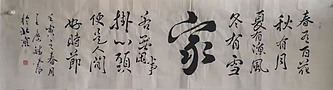 春有百花
秋有月
夏有涼風
冬有雪
家
若無閑事
掛心頭
便是人間
好時節